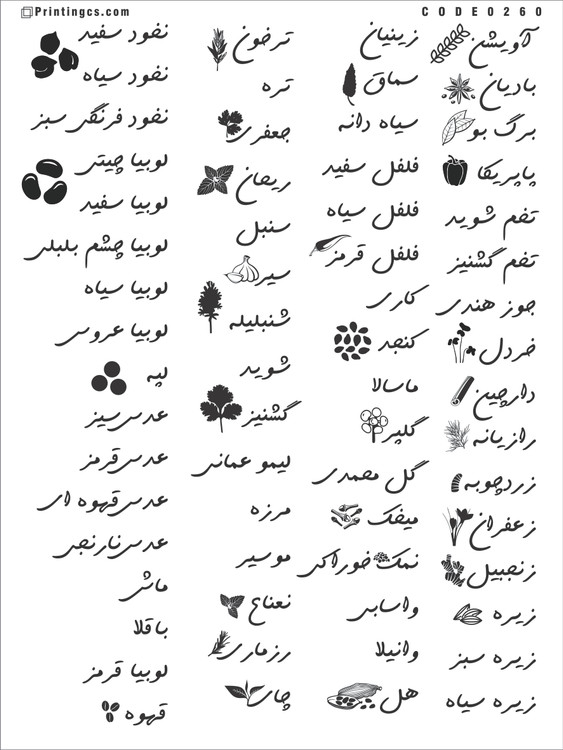 Printingcs.com
CODE0260
آویشن
بادیان
برگ بو
پاپریکا
تخم شوید
تخم گشنیز
جوز هندی
خردل
دارچین
رازیانه
زردچوبه
زعفران
زنجبیل
زیره
زیره سبز
زیره سیاه
زینیان
سماق
سیاه دانه
فلفل سفید
فلفل سیاه
فلفل قرمز
کاری
کنجد
ماسالا
گلپر
گل محمدی
میخک
نمک خوراکی
واسابی
وانیلا
هل
ترخون
تره
جعفری
ریحان
سنبل
سیر
شنبلیله
شوید
گشنیز
لیمو عمانی
مرزه
موسیر
نعناع
رزماری
چای
نخود سفید
نخود سیاه
نخود فرنگی سبز
لوبیا چیتی
لوبیا سفید
لوبیا چشم بلبلی
لوبیا سیاه
لوبیا عروس
لپه
عدس سبز
عدس قرمز
عدس قهوه ای
عدس نارنجی
ماش
باقلا
لوبیا قرمز
قهوه